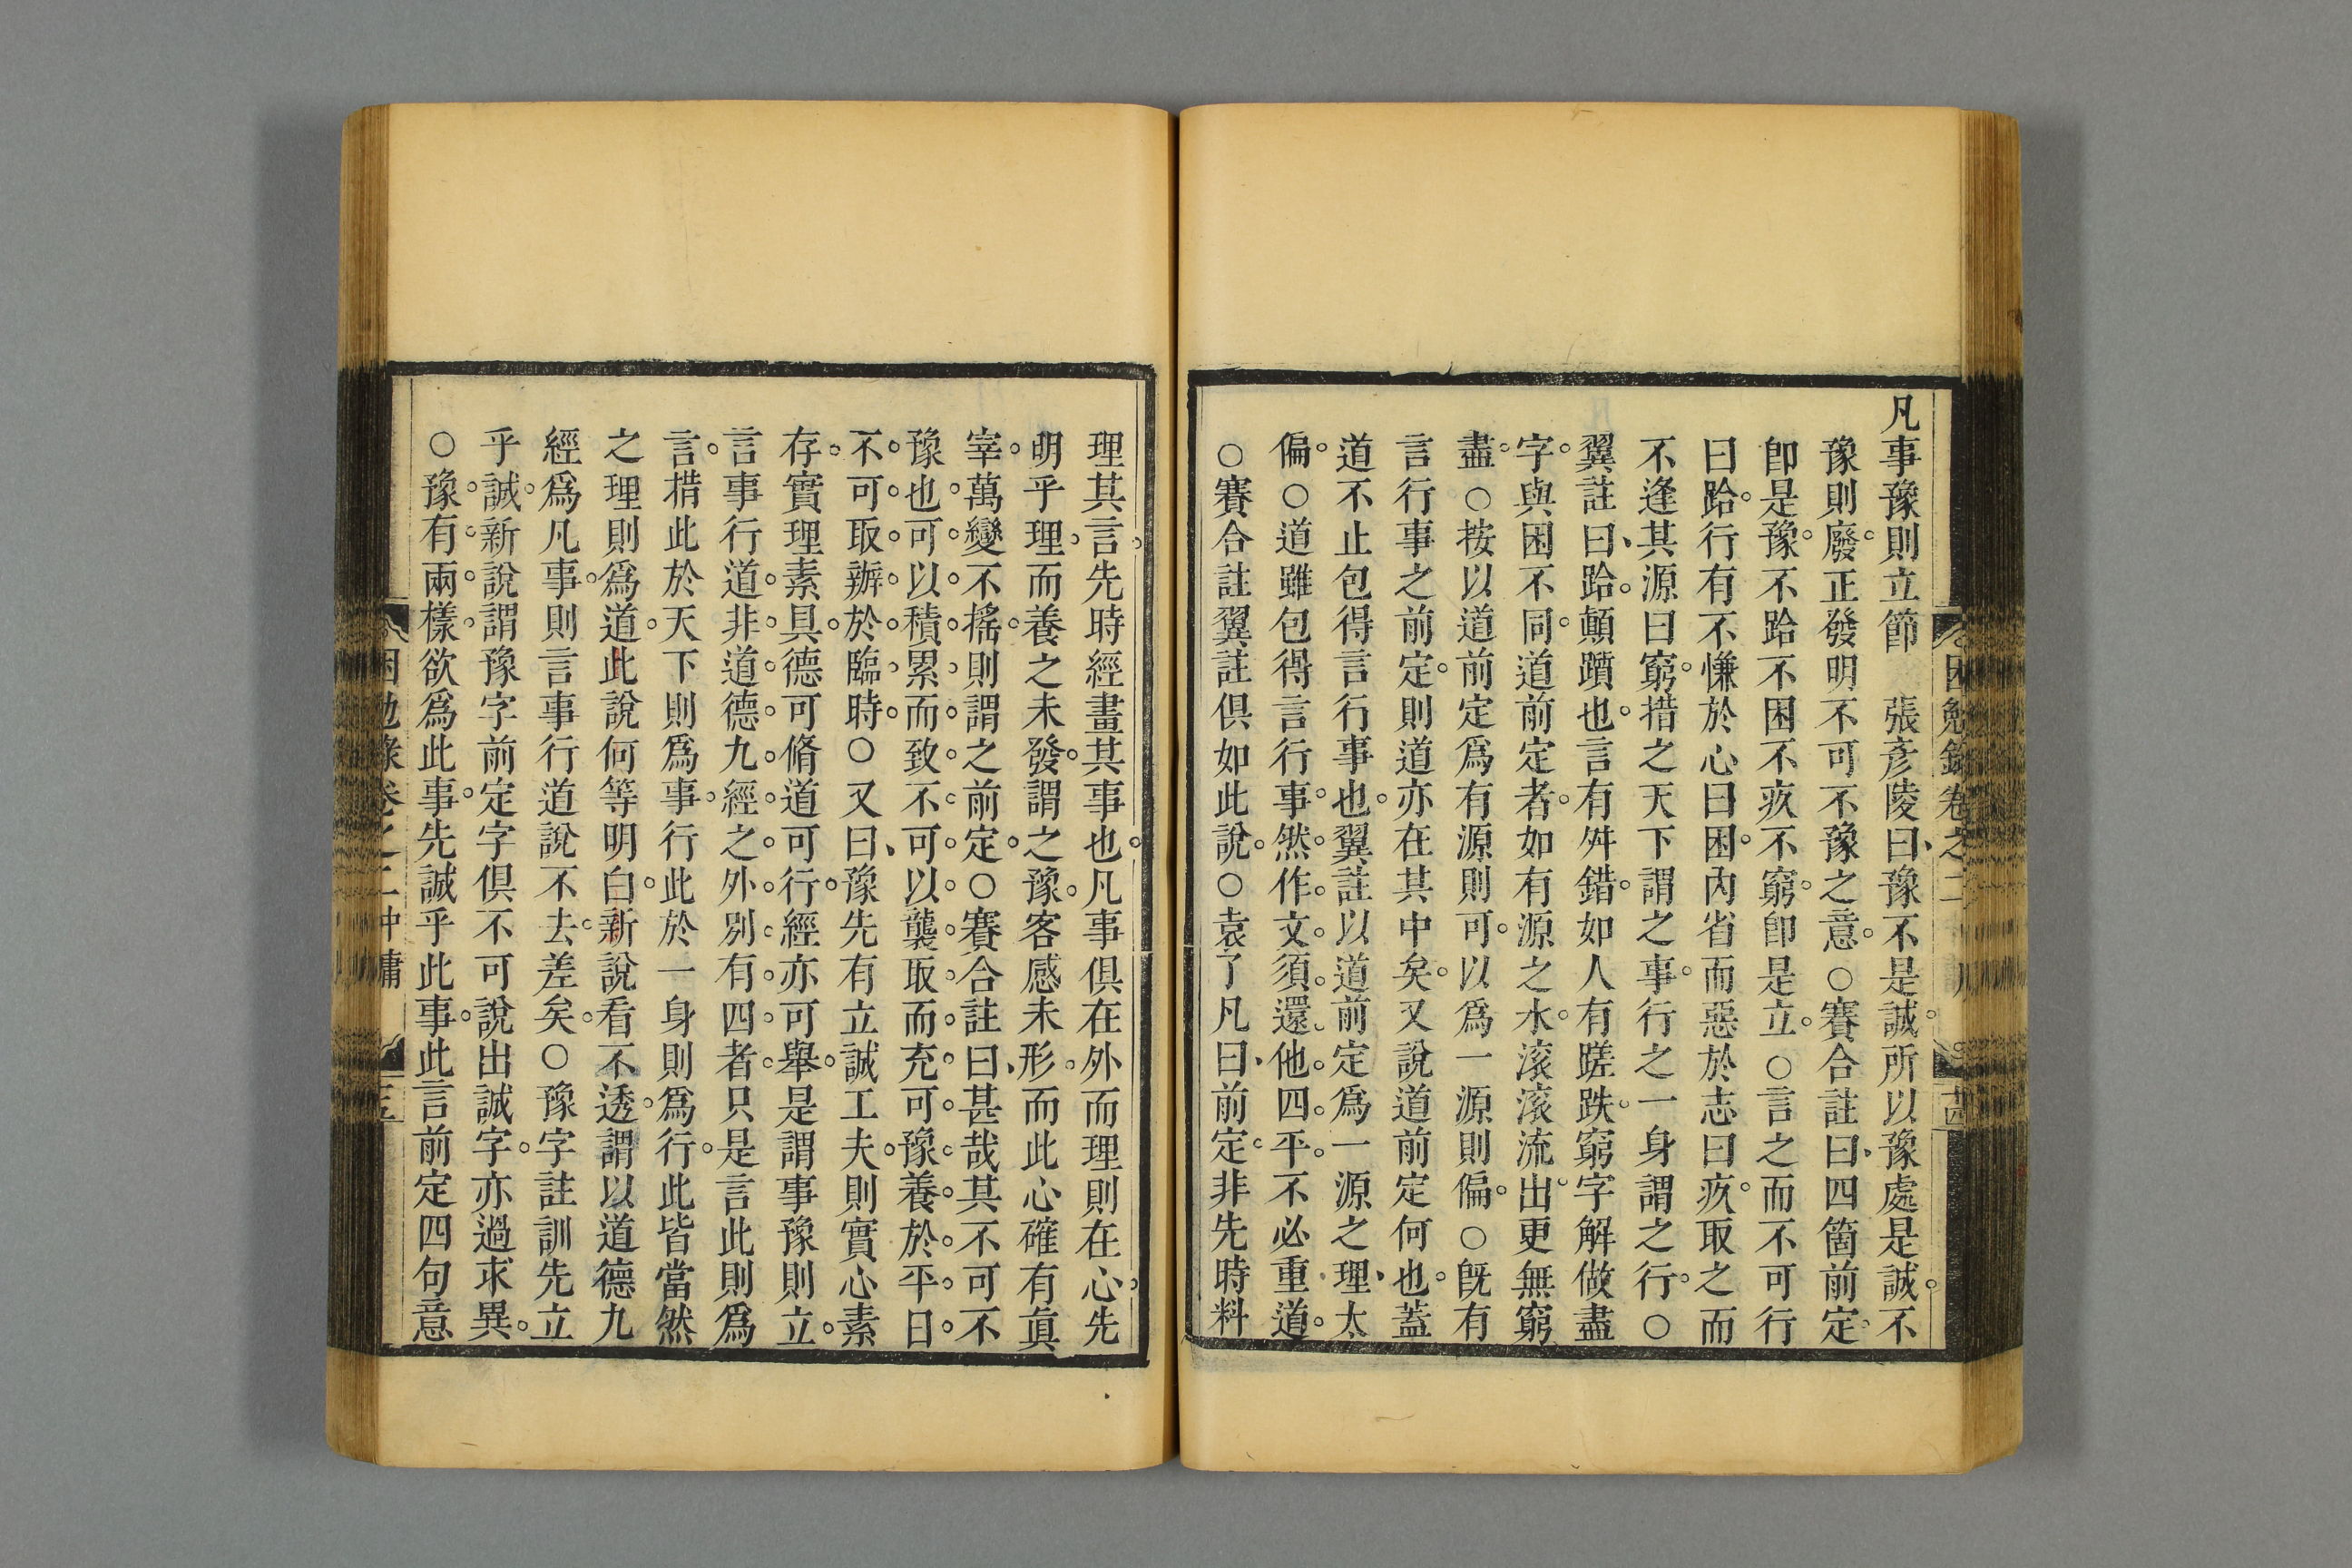 凡事豫則立節 張彥陵曰豫不是誠所以豫處是誠不
豫則廢正發明不可不豫之意○賽合註曰四箇前定
卽是豫不跲不困不疚不窮卽是立○言之而不可行
曰跲行有不慊於心曰困內省而惡於志曰疚取之而
不逢其源曰窮措之天下謂之事行之一身謂之行○
翼註曰跲顛躓也言有舛錯如人有蹉跌窮字解做盡
字與困不同道前定者如有源之水滚滚流出更無窮
盡○按以道前定爲有源則可以爲一源則偏○旣有
言行事之前定則道亦在其中矣又說道前定何也蓋
道不止包得言行事也翼註以道前定爲一源之理太
偏○道雖包得言行事然作文須還他四平不必重道
○賽合註翼註俱如此說○袁了凡曰前定非先時料
理其言先時經畫其事也凡事俱在外而理則在心先
明乎理而養之未發謂之豫客感未形而此心確有眞
宰萬變不搖則謂之前定○賽合註曰甚哉其不可不
豫也可以積累而致不可以襲取而充可豫養於平日
不可取辦於臨時○又曰豫先有立誠工夫則實心素
存實理素具德可脩道可行經亦可舉是謂事豫則立
言事行道非道德九經之外別有四者只是言此則爲
言措此於天下則爲事行此於一身則爲行此皆當然
之理則爲道此說何等明白新說看不透謂以道德九
經爲凡事則言事行道說不去差矣○豫字註訓先立
乎誠新說謂豫字前定字俱不可說出誠字亦過求異
○豫有兩樣欲爲此事先誠乎此事此言前定四句意
困勉錄卷之二中庸